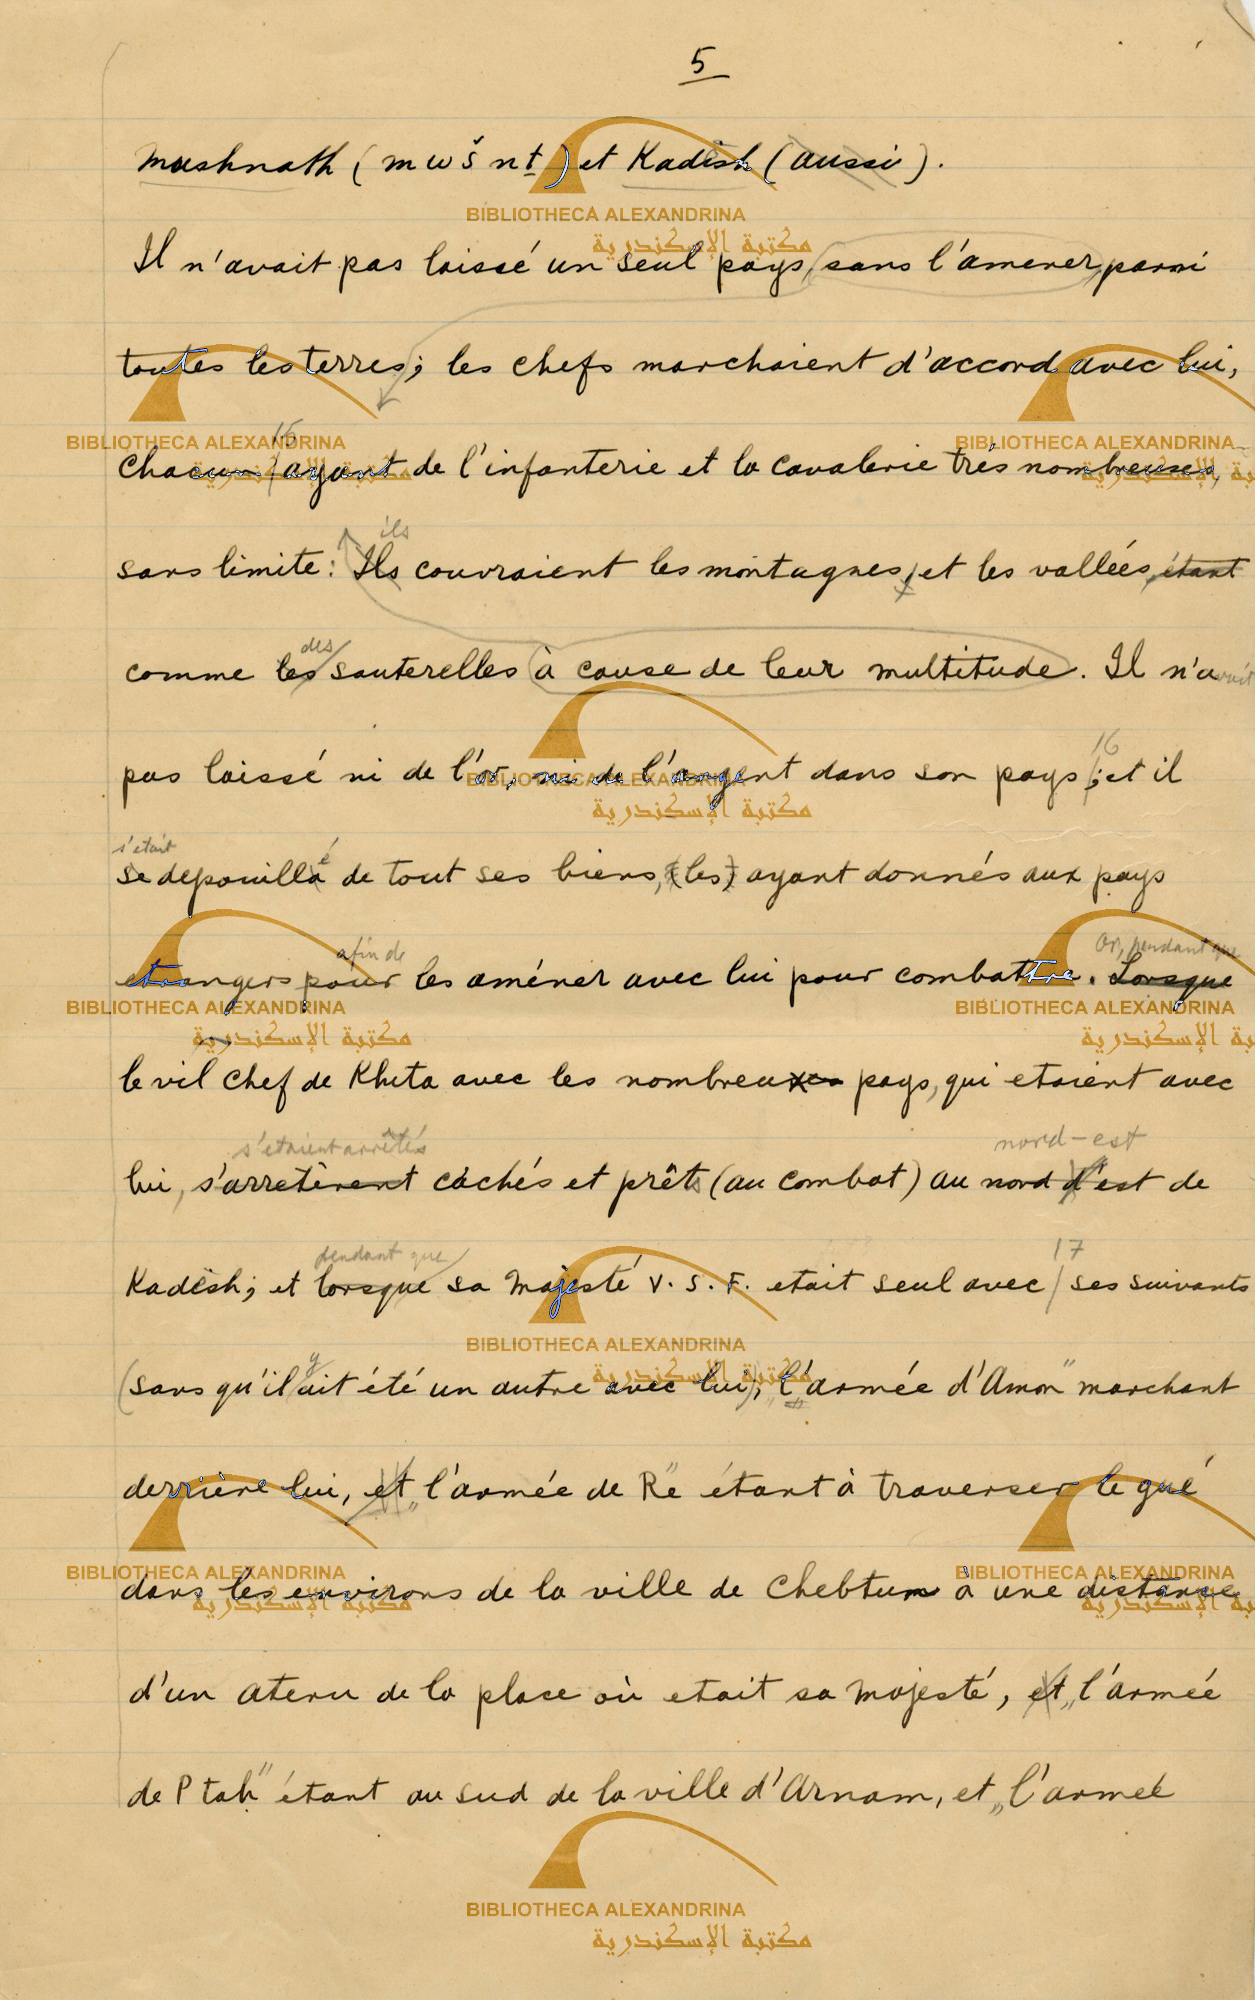 5
Mushnath (mwšnṯ) et Kadësh (aussi).
Il n'avait pas laissé un seul pays, sans l'amener, parmi
toutes les terres; les chefs marchaient d'accord avec lui,
15
chacun / ayant de l'infanterie et la cavalerie très nombreuses,
ils
sans limite: Ils couvraient les montagnes, et les vallées, étant
des
comme les sauterelles à cause de leur multitude. Il n'avait
16
pas laissé ni de l'or, ni de l'argent dans son pays /; et il
s'était é
se depouilla de tout ses biens, (les) ayant donnés aux pays
afin de Or, pendant que
etrangers pour les améner avec lui pour combattre. Lorsque
le vil chef de Kheta avec les nombreuxes pays, qui etaient avec
s'etaient arrêtés nord-est
lui, s'arretèrent cachés et prêts (au combat) au nord d'est de
pendant que 17
Kadësh; et lorsque sa Majesté V. S. F. etait seul avec / ses suivants
y
(sans qu'il ait été un autre avec lui); „l'armée d'Amon" marchant
derrière lui, et „l'armée de Rē" étant à traverser le gué
dans les environs de la ville de Chebtum à une distance
d'un ateru de la place où etait sa Majesté, et „l'armée
de Ptaḥ" étant au sud de la ville d'Arnam, et „l'armée
BIBLIOTHECA ALEXANDRINA
مكتبة الإسكندرية